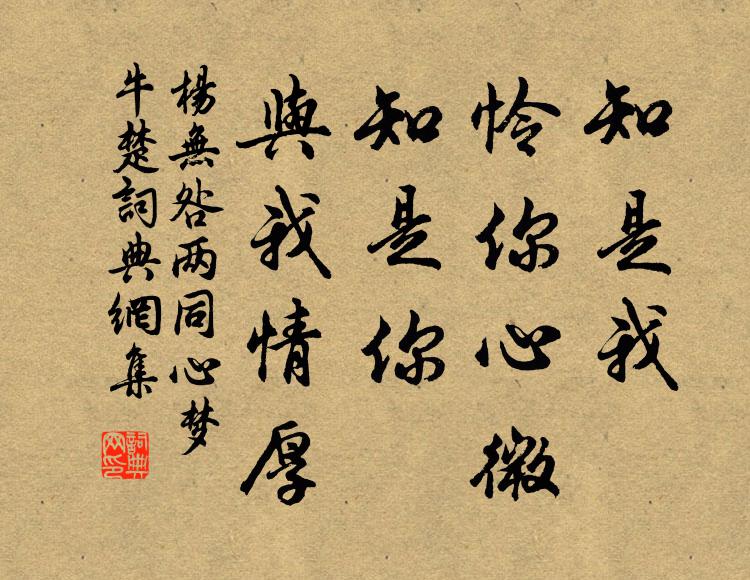 知是我
怜你心微
知是你
與我情厚
楊無咎两同心梦
牛楚詞典網集
詞典
网印